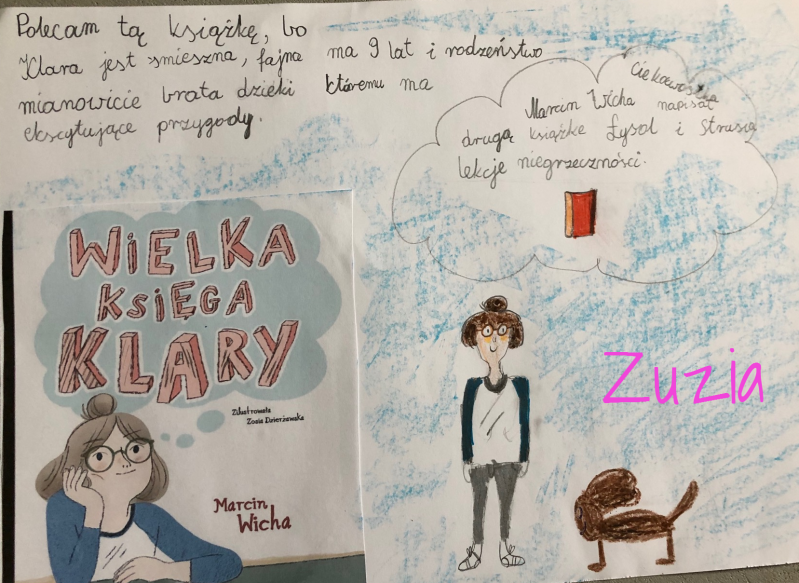 Polecam tą książkę, bo
Klara jest śmieszna, fajna ma 9 lat i rodzeństwo
mianowicie brata dzięki któremu ma
ekscytujące przygody.
Ciekawostka
Marcin Wicha napisał
drugą książkę Łysol i Strusia
lekcje niegrzeczności.
WIELKA
KSIĘGA
KLARY
Zilustrowała
Zosia Dzierżawska
Marcin
Wicha
Zuzia